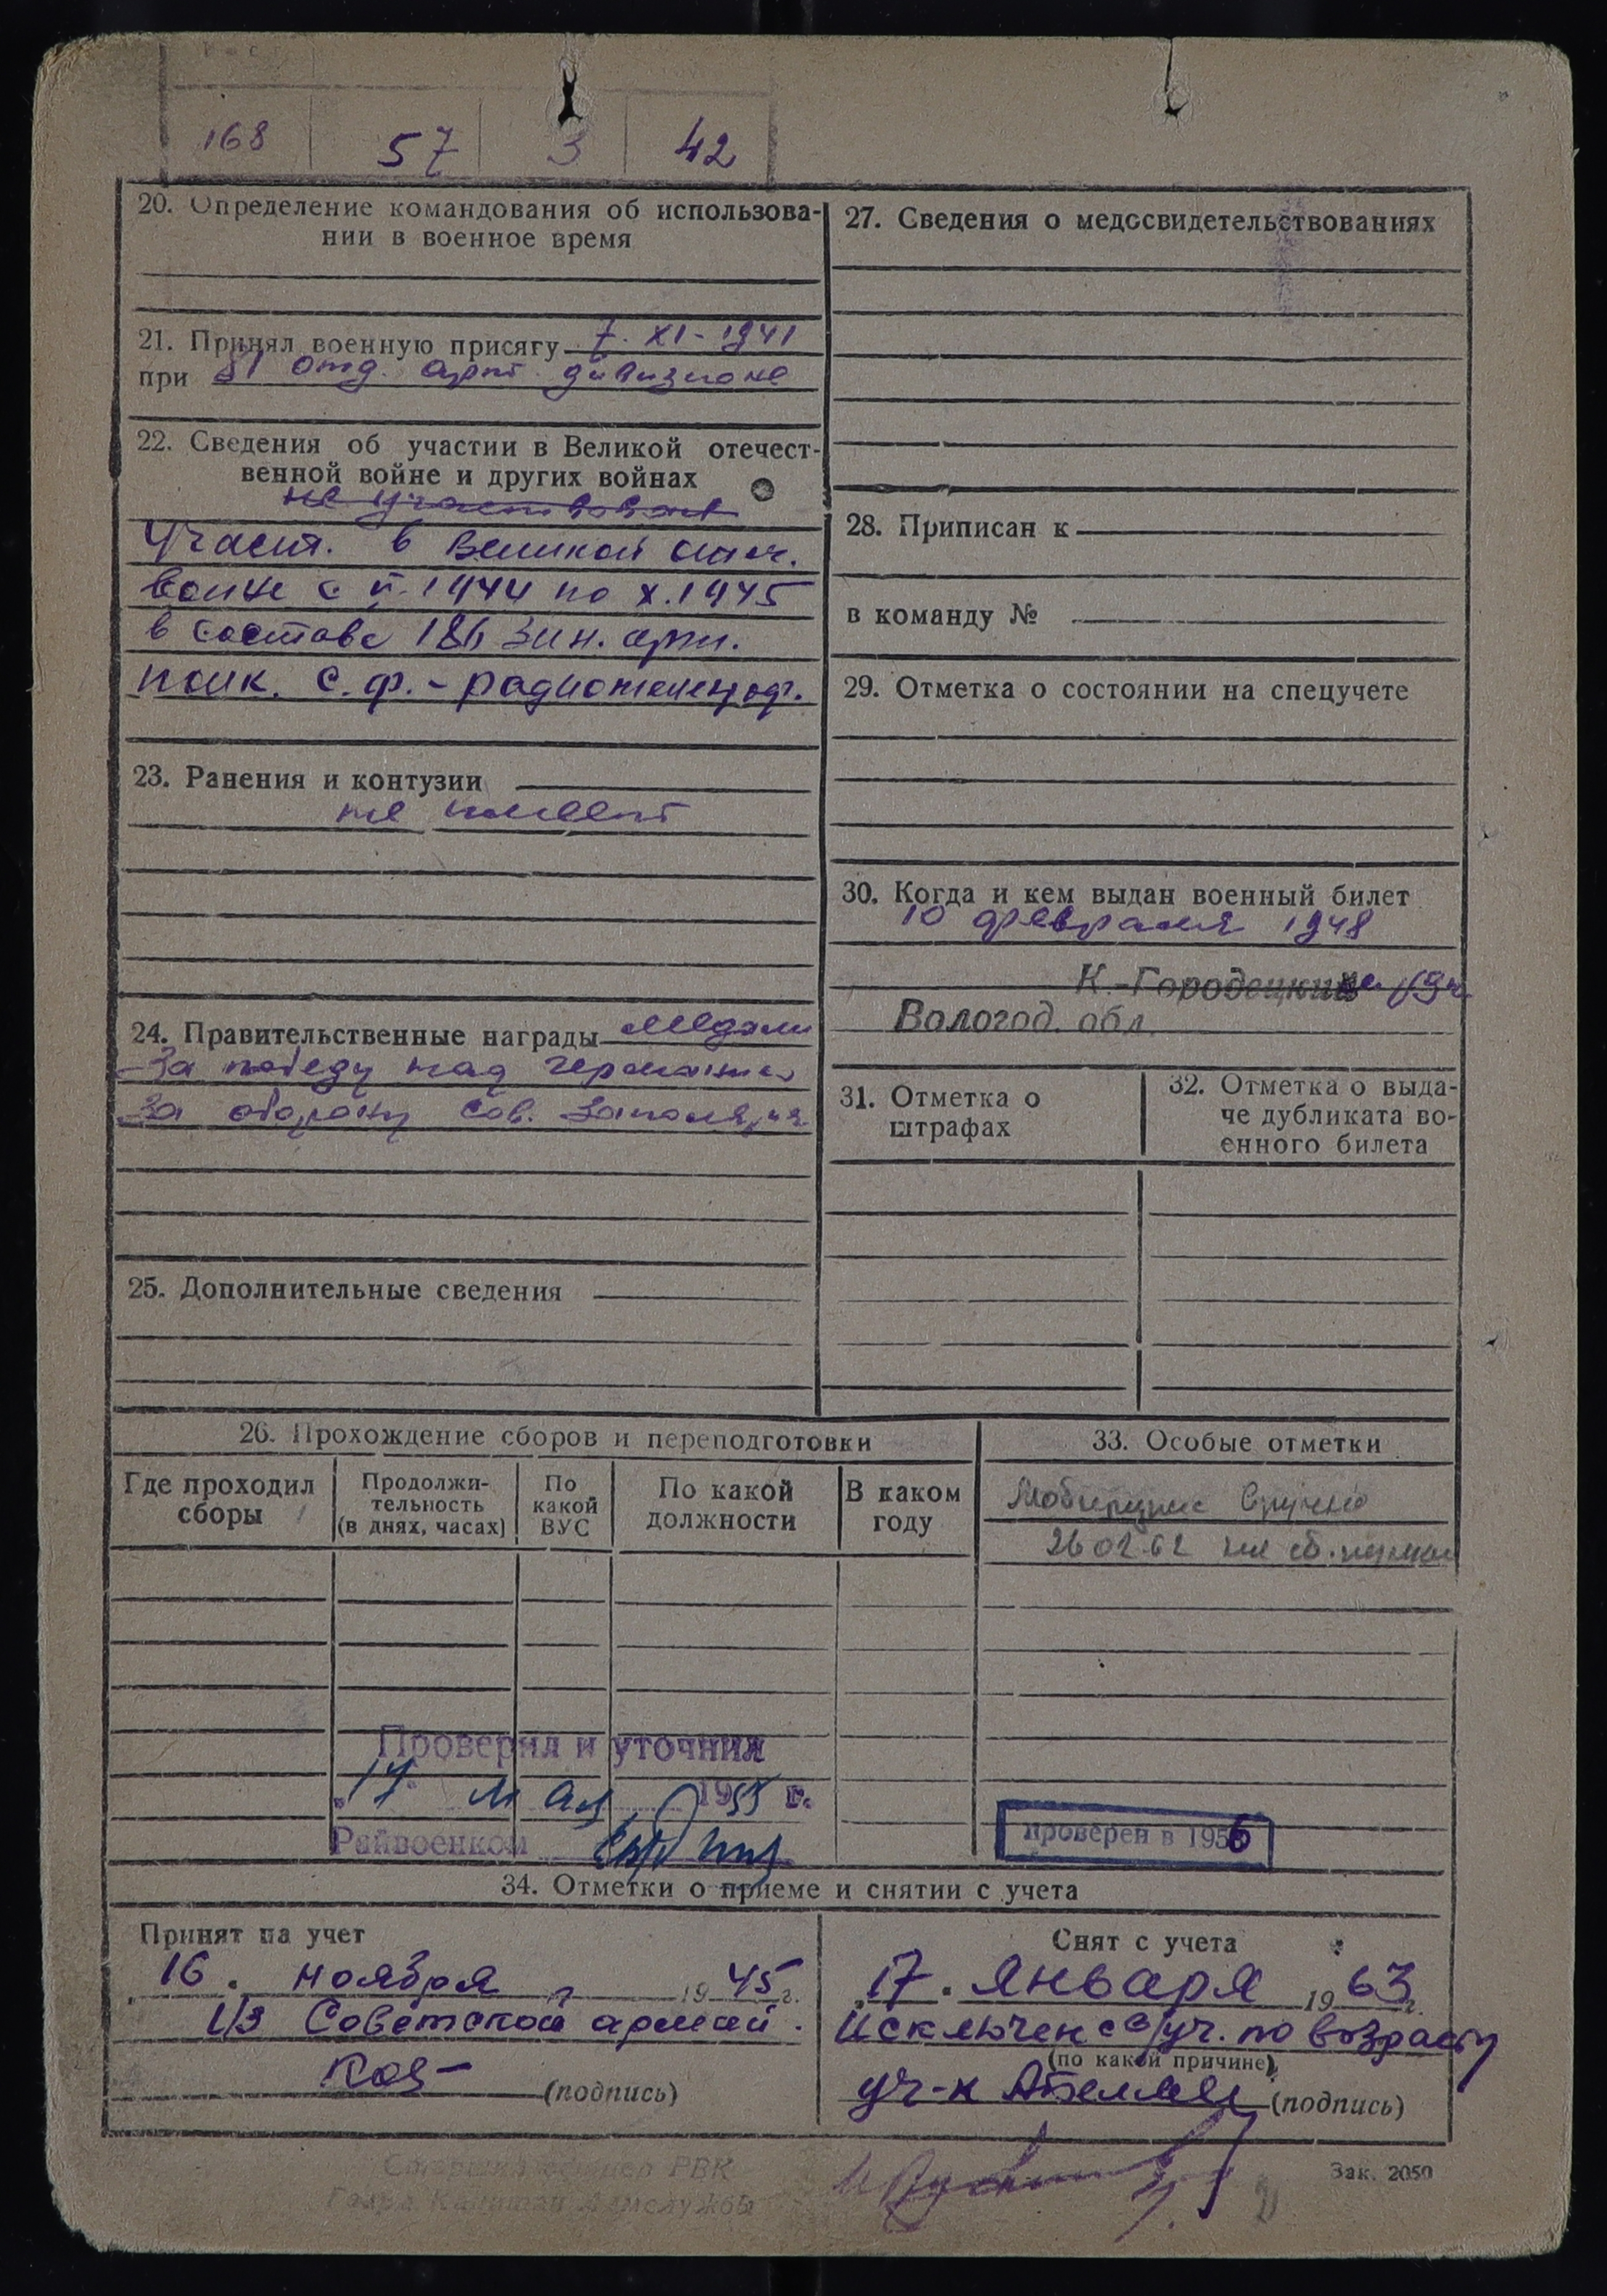 168 57 3 42
20. Определение командования об использова-
нии в военное время
21. Принял военную присягу 7. XI - 1941
при 81 отд. арт. дивизионе
22. Сведения об участии в Великой отечест-
венной войне и других войнах
не участвовал
Участ. в Великой отеч.
войне с II. 1944 по X. 1945
в составе 186 зен. арт.
полк. С. Ф. -
23. Ранения и контузии
не имеет
24. Правительственные награды медали
За победу над Германией
За оборону Сов. Заполярья
25. Дополнительные сведения
27. Сведения о медосвидетельствованиях
28. Приписан к
в команду №
29. Отметка о состоянии на спецучете
30. Когда и кем выдан военный билет
10 февраля 1948
К.-Городецким
Вологод. обл.
31. Отметка о
штрафах
32. Отметка о выда-
че дубликата во-
енного билета
26. Прохождение сборов и переподготовки
Где проходил
сборы
Продолжи-
тельность
(в днях, часах)
По
какой
ВУС
По какой
должности
В каком
году
33. Особые отметки
вручено
26 02 62
Проверил и уточнил
17 мая 1955 г.
Райвоенком
проверен в 1956
34. Отметки о приеме и снятии с учета
Принят на учет
16. ноября 1945 г.
из Советской армии.
(подпись)
Снят с учета
17. Января 1963 г.
Исключен с в/уч. по возрасту
(по какой причине)
(подпись)
Зак. 2050